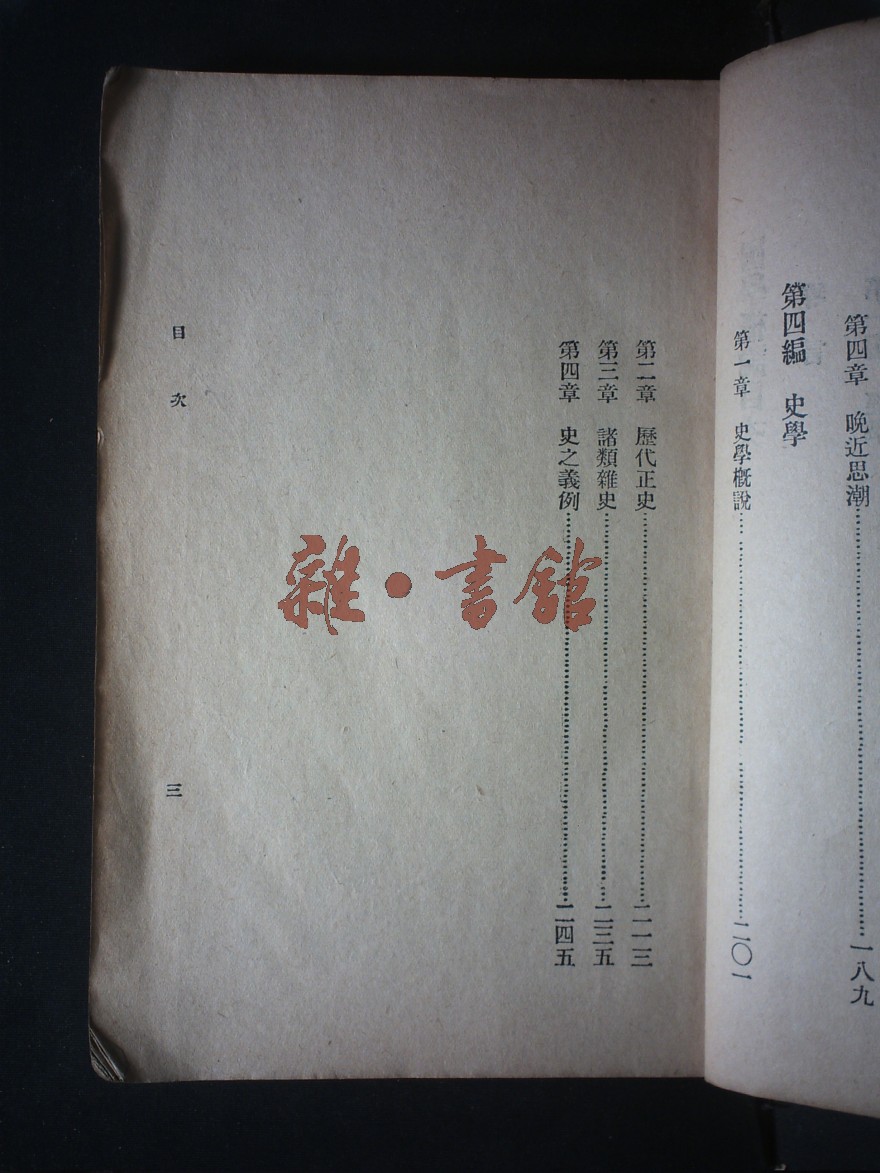 第四章 晚近思潮……………………一八九
第四編 史學
第一章 史學概說……………………二〇一
第二章 歷代正史……………………二一三
第三章 諸類雜史……………………二三五
第四章 史之義例……………………二四五
目次
三
雜·書館